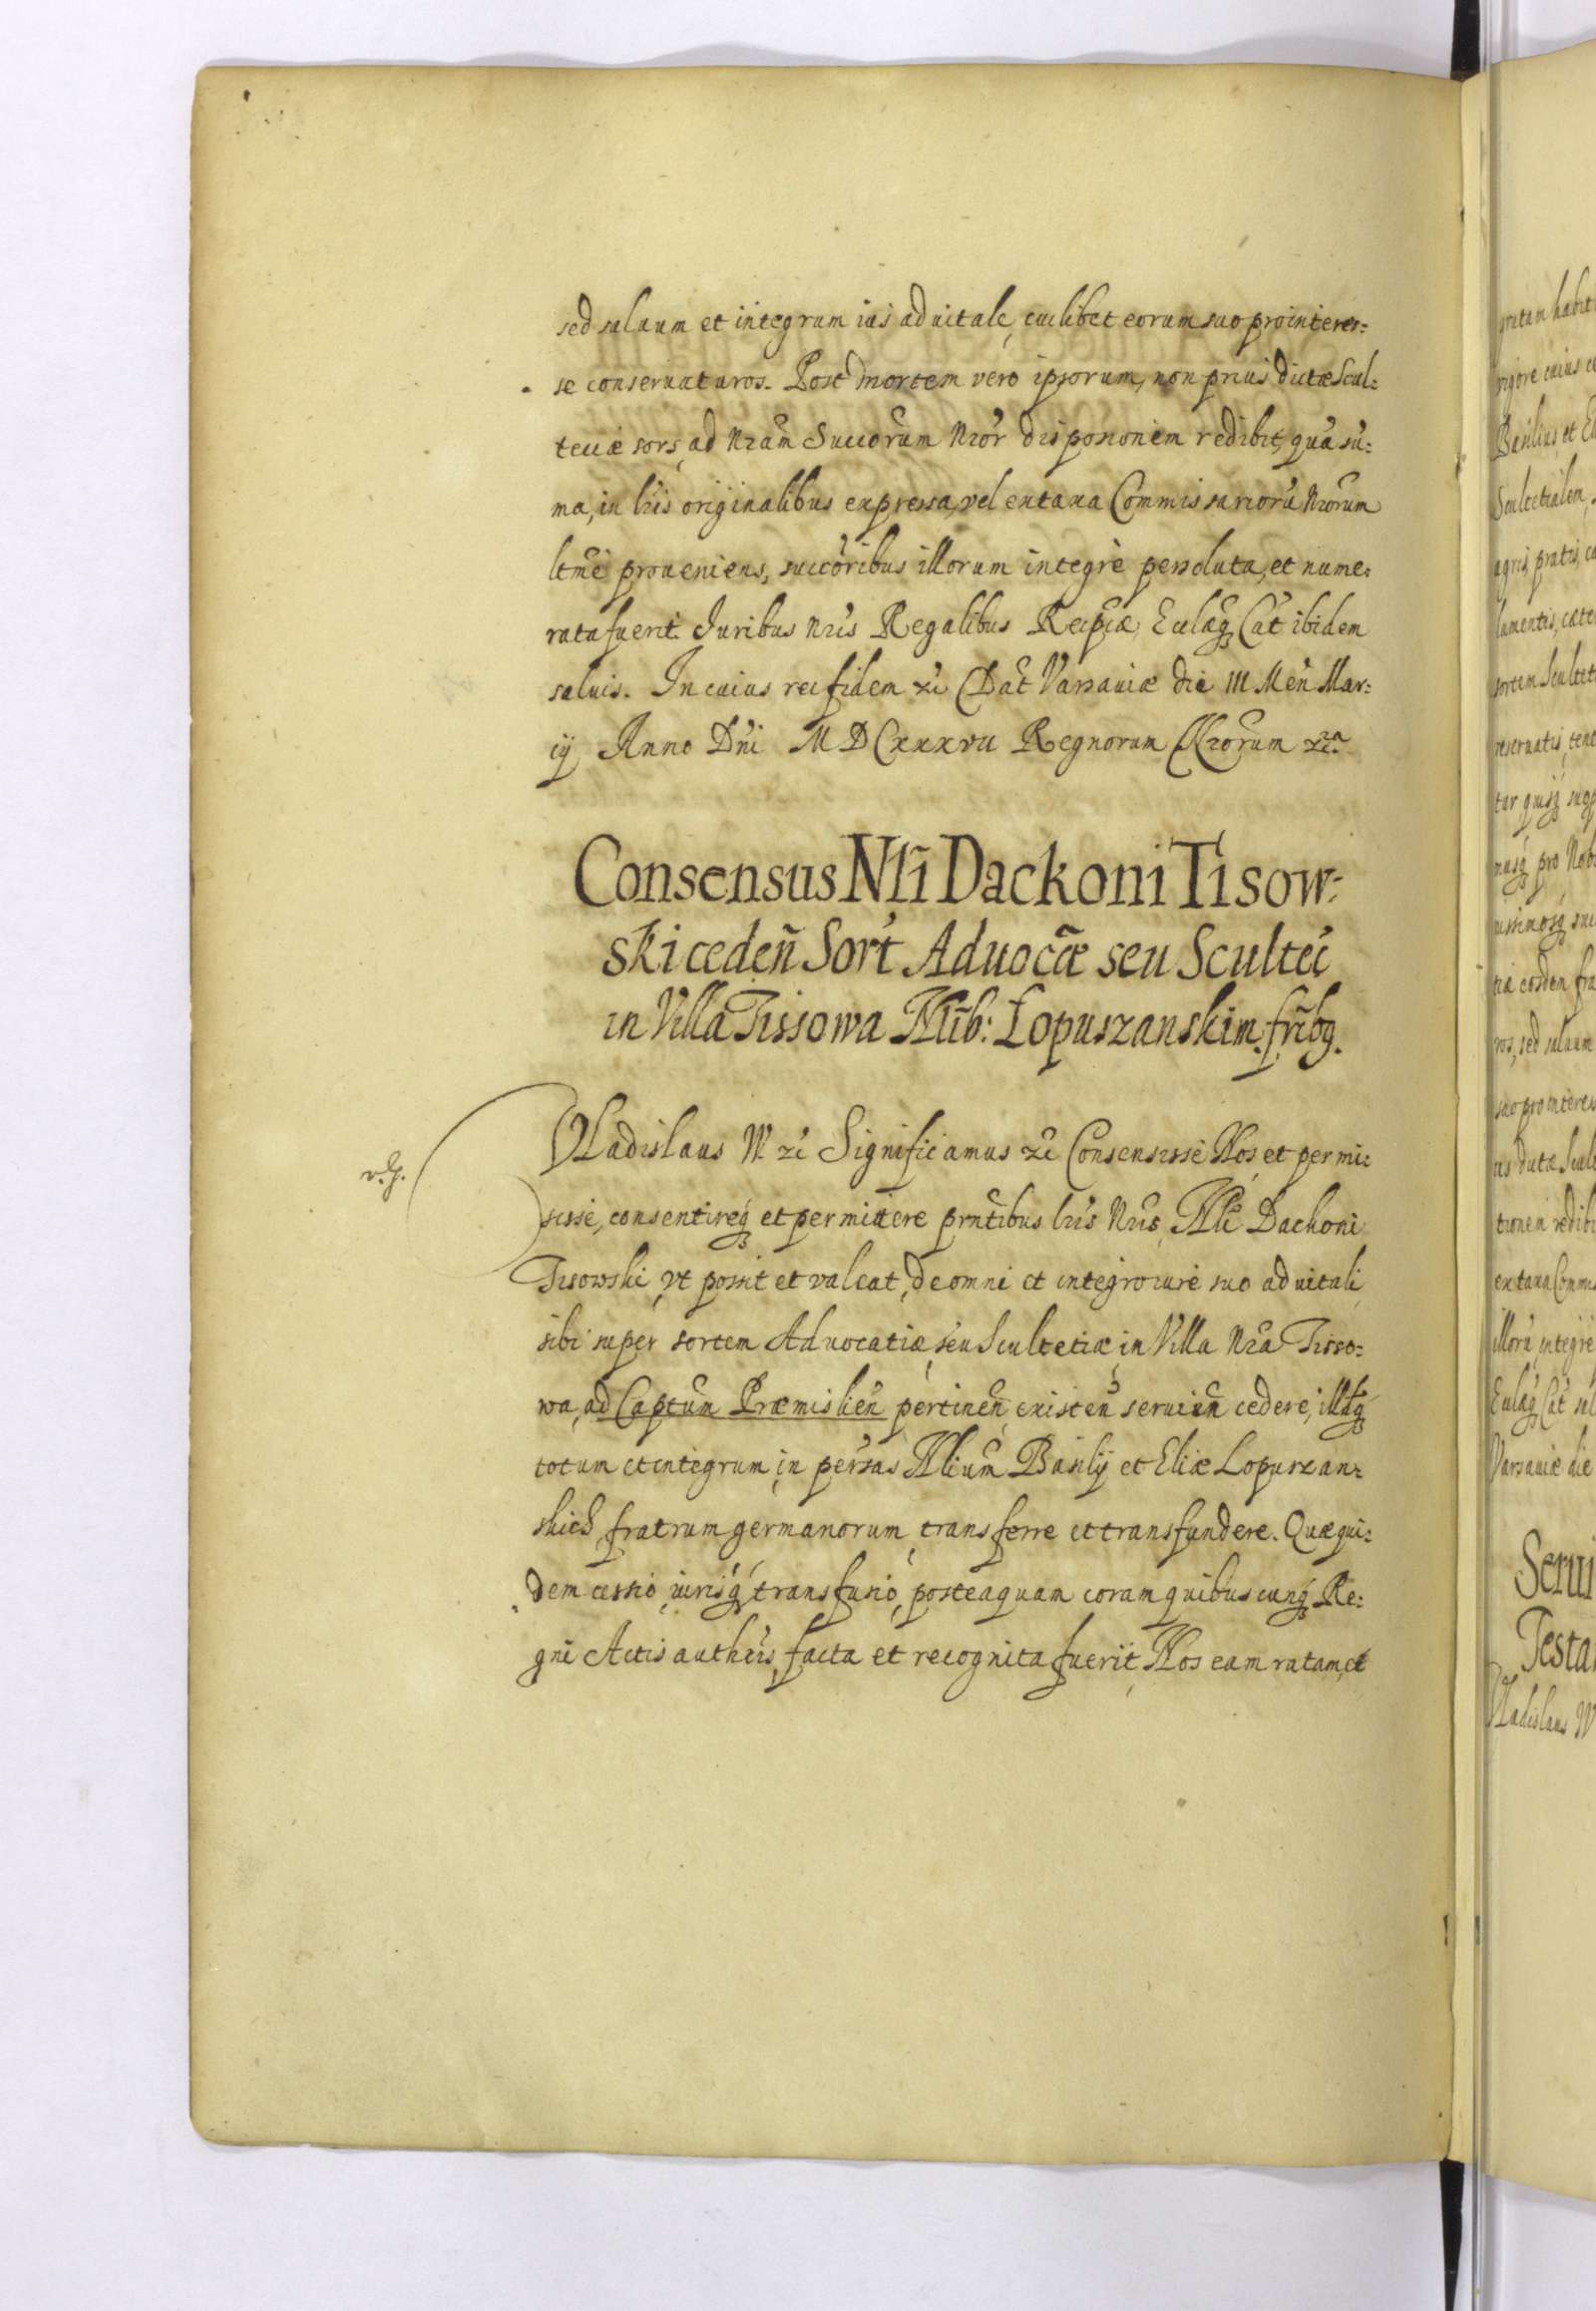 sed saluum et integrum ius aduitale, cuilibet eorum suo pro interes:
se conseruaturos. Post mortem vero ipsorum, non prius dictæ Scul:
teciæ sors, ad Nram Succorum Nror disposionem redibit, qua su:
ma, in lris originalibus expressa, vel ex taxa Commissariorũ Nrorum
ltme proueniens, succoribus illorum integrè persoluta, et nume:
rata fuerit. Iuribus Nris Regalibus Reipcæ, Eccłæq Cat ibidem
saluis. In cuius rei fidem zc Dat Varsauiæ die III Men Mar:
cij Anno Dni MDCxxxvii Regnorum Nrorum zc
Consensus Nłi Dackoni Tisow:
ski ceden Sort Aduocæ seu Scultec
in Villa Tissowa Nlib: Łopuszanskim fribq.
v. g.
Vladislaus IV. zc Significamus zc Consensisse Nos et permi:
sisse, consentireq et permittere prntibus lris Nris, Nli Dackoni
Tisowski, vt possit et valeat, de omni et integro iure suo aduitali
sibi super sortem Aduocatiæ, seu Scultetiæ, in Villa Nra Tisso:
wa, ad Captum Præmislien pertinen, existen seruien cedere, illudq
totum et integrum, in persas Nlium Basilij et Eliæ Lopuszan:
skich fratrum germanorum, transferre et transfundere. Quæ qui:
dem cessio, iurisq transfusio, posteaquam coram quibuscunq Re:
gni Actis authcis, facta et recognita fuerit, Nos eam ratam, et
vigore cuius
Basilius, et
agris, pratis,
sortem Scultet
reseruatis,
ros, sed saluum
suo pro interes
tionem redibi
ex taxa Commis
illorũ integrè
Varsauiæ die
Serui
Testa
Vladislaus IV